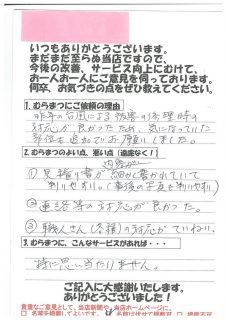 いつもありがとうございます。
まだまだ至らぬ当店ですので、
今後の改善、サービス向上にむけて、
お一人お一人にご意見を伺っております。
何卒、お気づきの点をぜひ教えてください。
1.むらまつにご依頼の理由
昨年の台風による被害の修理時の
対応が良かったため、気になっていた
部位を追加でお願いしました。
2.むらまつのよい点、悪い点（遠慮なく！）
内容が
① 見積り書が細かく書かれていて
判りやすい。（事後の写真も判りやすい）
② 連絡等の対応が良かった。
③ 職人さん（各種）の対応がていねい。
3.むらまつに、こんなサービスがあれば・・・
特に思い当たりません。
ご記入に大感謝いたします。
ありがとうございました！
貴重なご意見として、当店新聞や当店ホームページに、